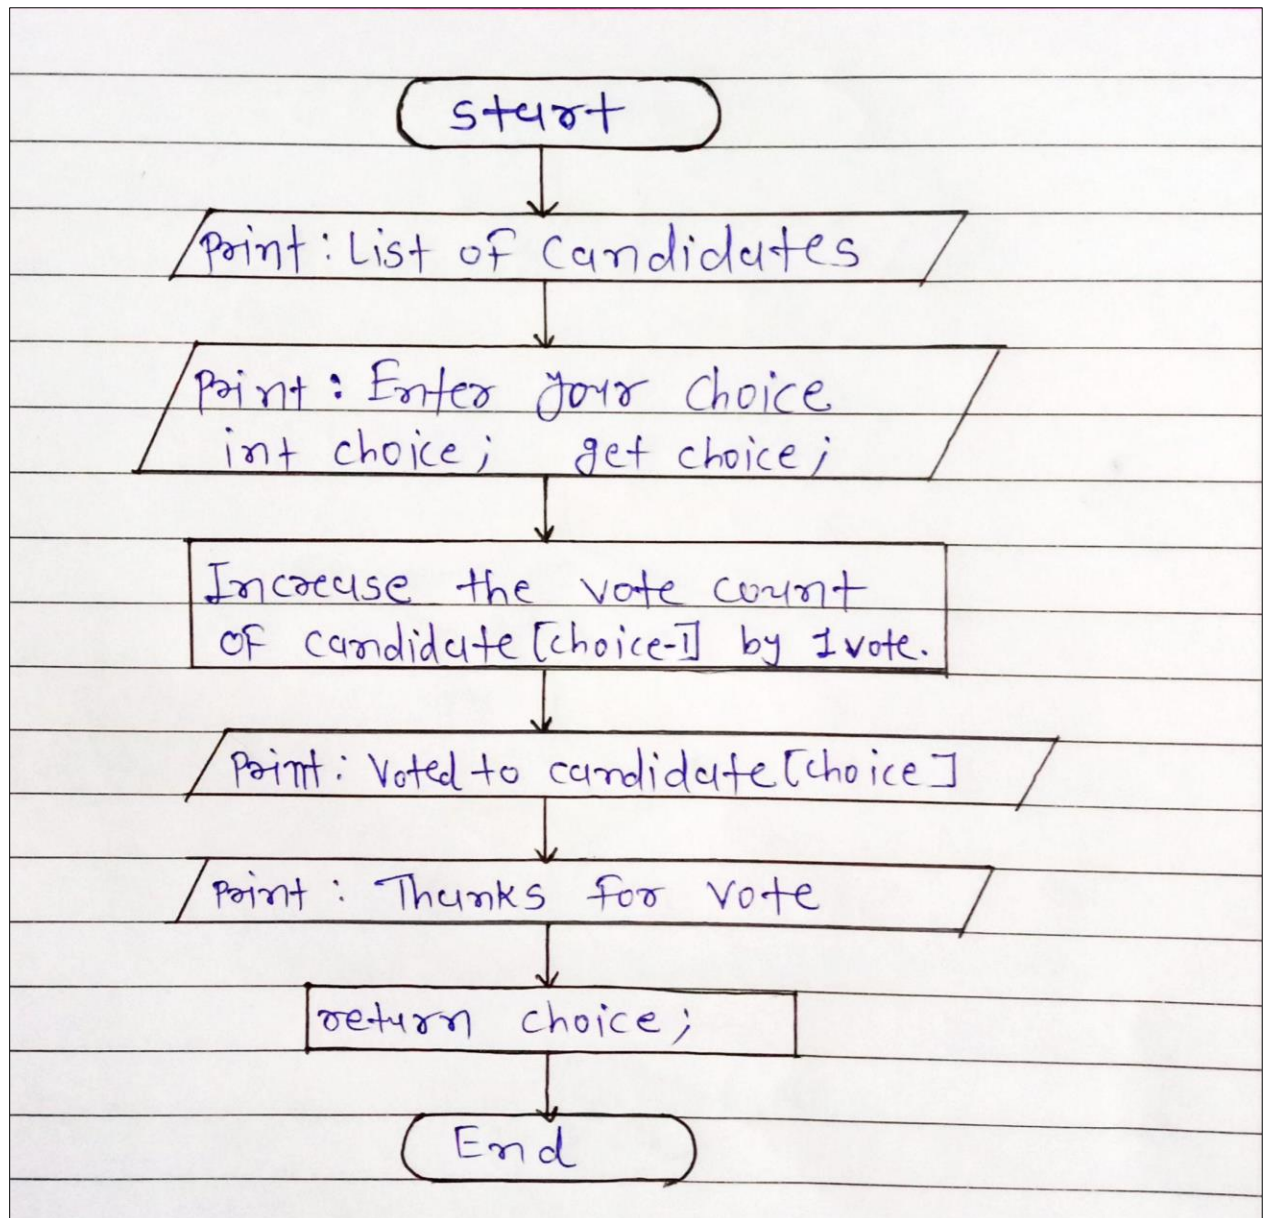 start
Print : List of candidates
Print : Enter your choice
int choice; get choice;
Increase the vote count
of candidate [choice-1] by 1 vote.
Print : Voted to candidate [choice]
Print : Thanks for vote
return choice;
End